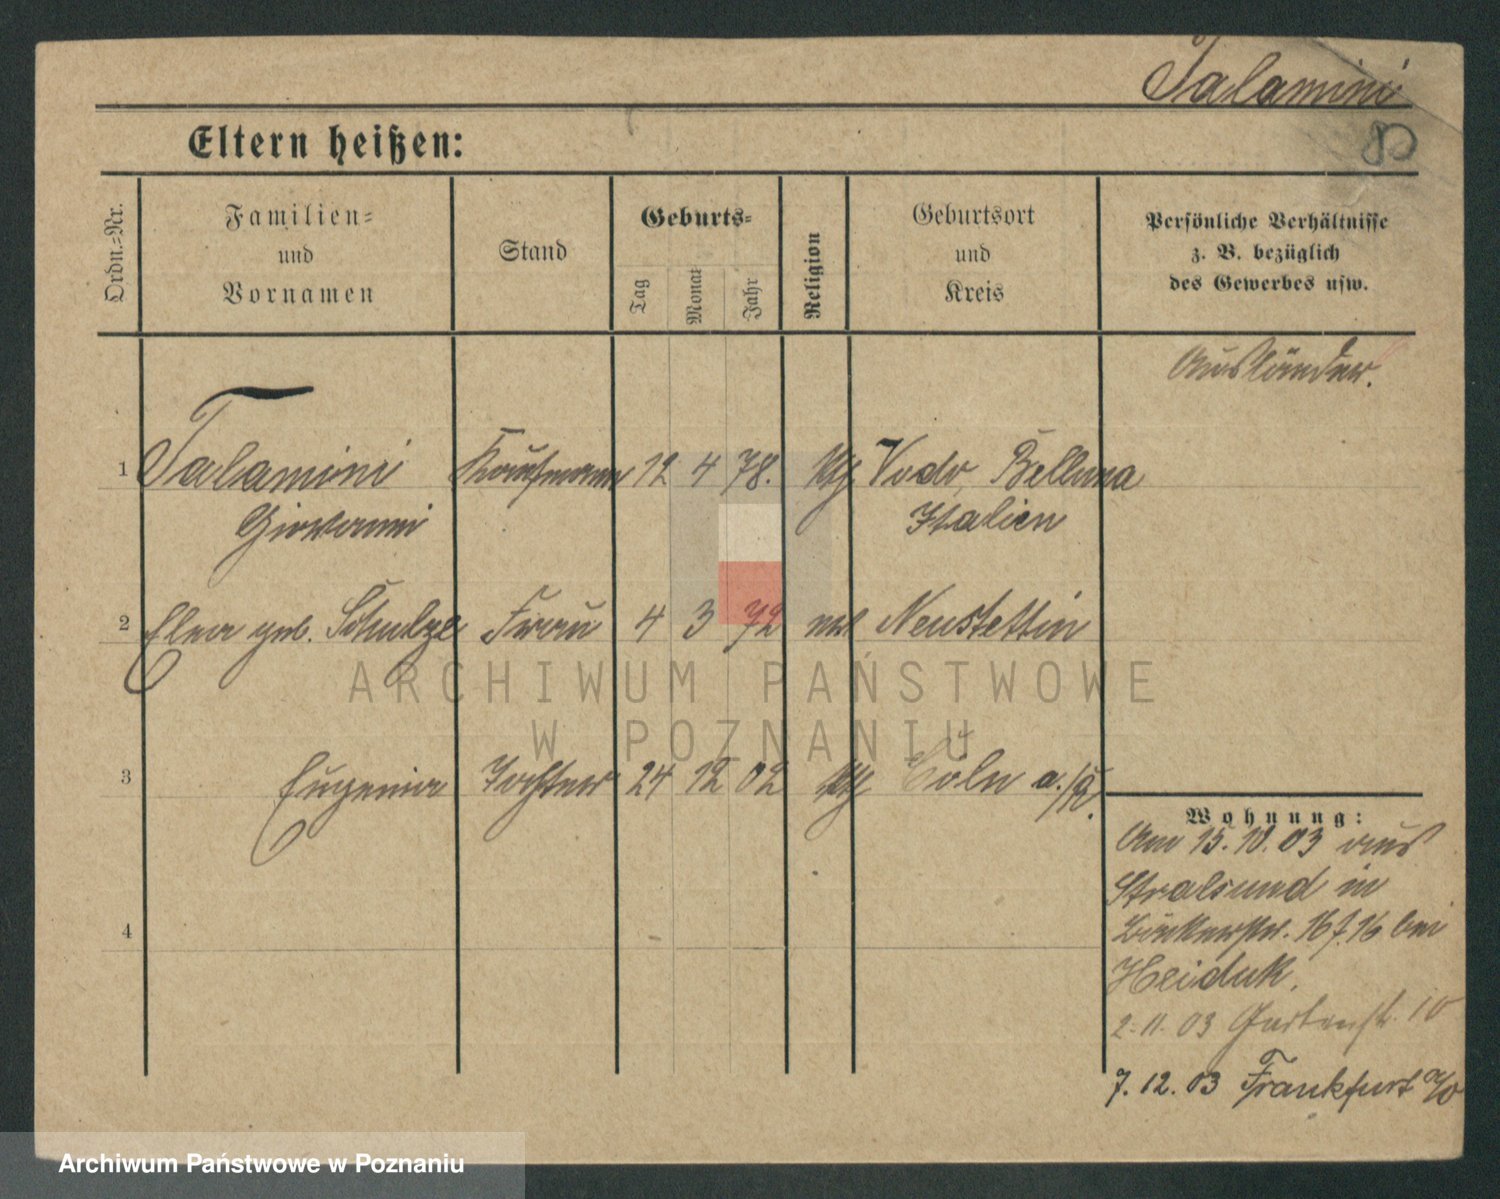 Talamini
80
Eltern heißen:
Ordn.-Nr.
Familien-
und
Vornamen
Stand
Geburts-
Tag
Monat
Jahr
Religion
Geburtsort
und
Kreis
Persönliche Verhältnisse
z. B. bezüglich
des Gewerbes usw.
Ausländer.
1 Talamini Kaufmann 12 4 78. kth. Vodo, Belluna
Giovanni Italien
2 Elna geb. Schulze Frau 4 3 72 evl Neustettin
ARCHIWUM PAŃSTWOWE
W POZNANIU
3 Eugenia Tochter 24 12 02 kth Cöln a./R.
4
Wohnung:
Am 15.10.03 aus
Stralsund in
16 bei
Heiduk.
2.11.03 Gartenstr. 10
7.12.03 Frankfurt a/O
Archiwum Państwowe w Poznaniu